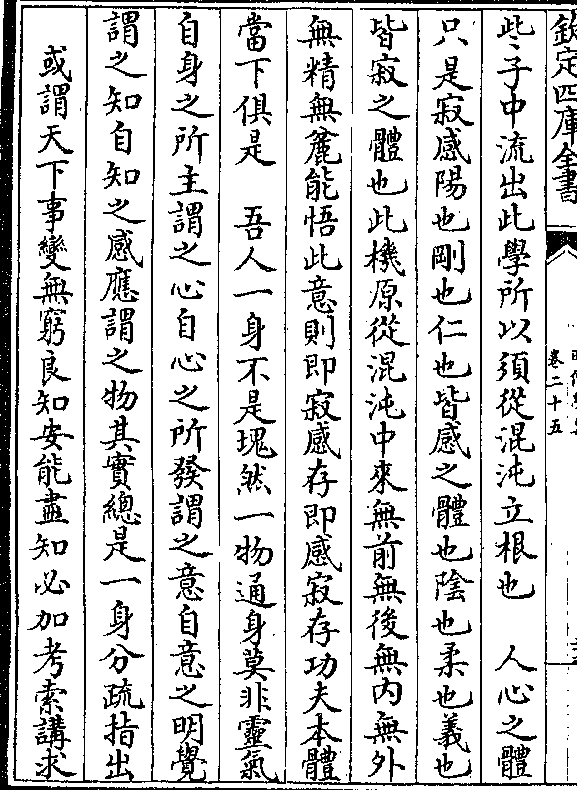 欽定四庫全書
卷二十五
此子中流出此學所以須從混沌立根也　人心之體
只是寂感陽也剛也仁也皆感之體也陰也柔也義也
皆寂之體也此機原從混沌中來無前無後無内無外
無精無麄能悟此意則即寂感存即感寂存功夫本體
當下俱是　吾人一身不是塊然一物通身莫非靈氣
自身之所主謂之心自心之所發謂之意自意之明覺
謂之知自知之感應謂之物其實總是一身分疏指出
或謂天下事變無窮良知安能盡知必加考索講求